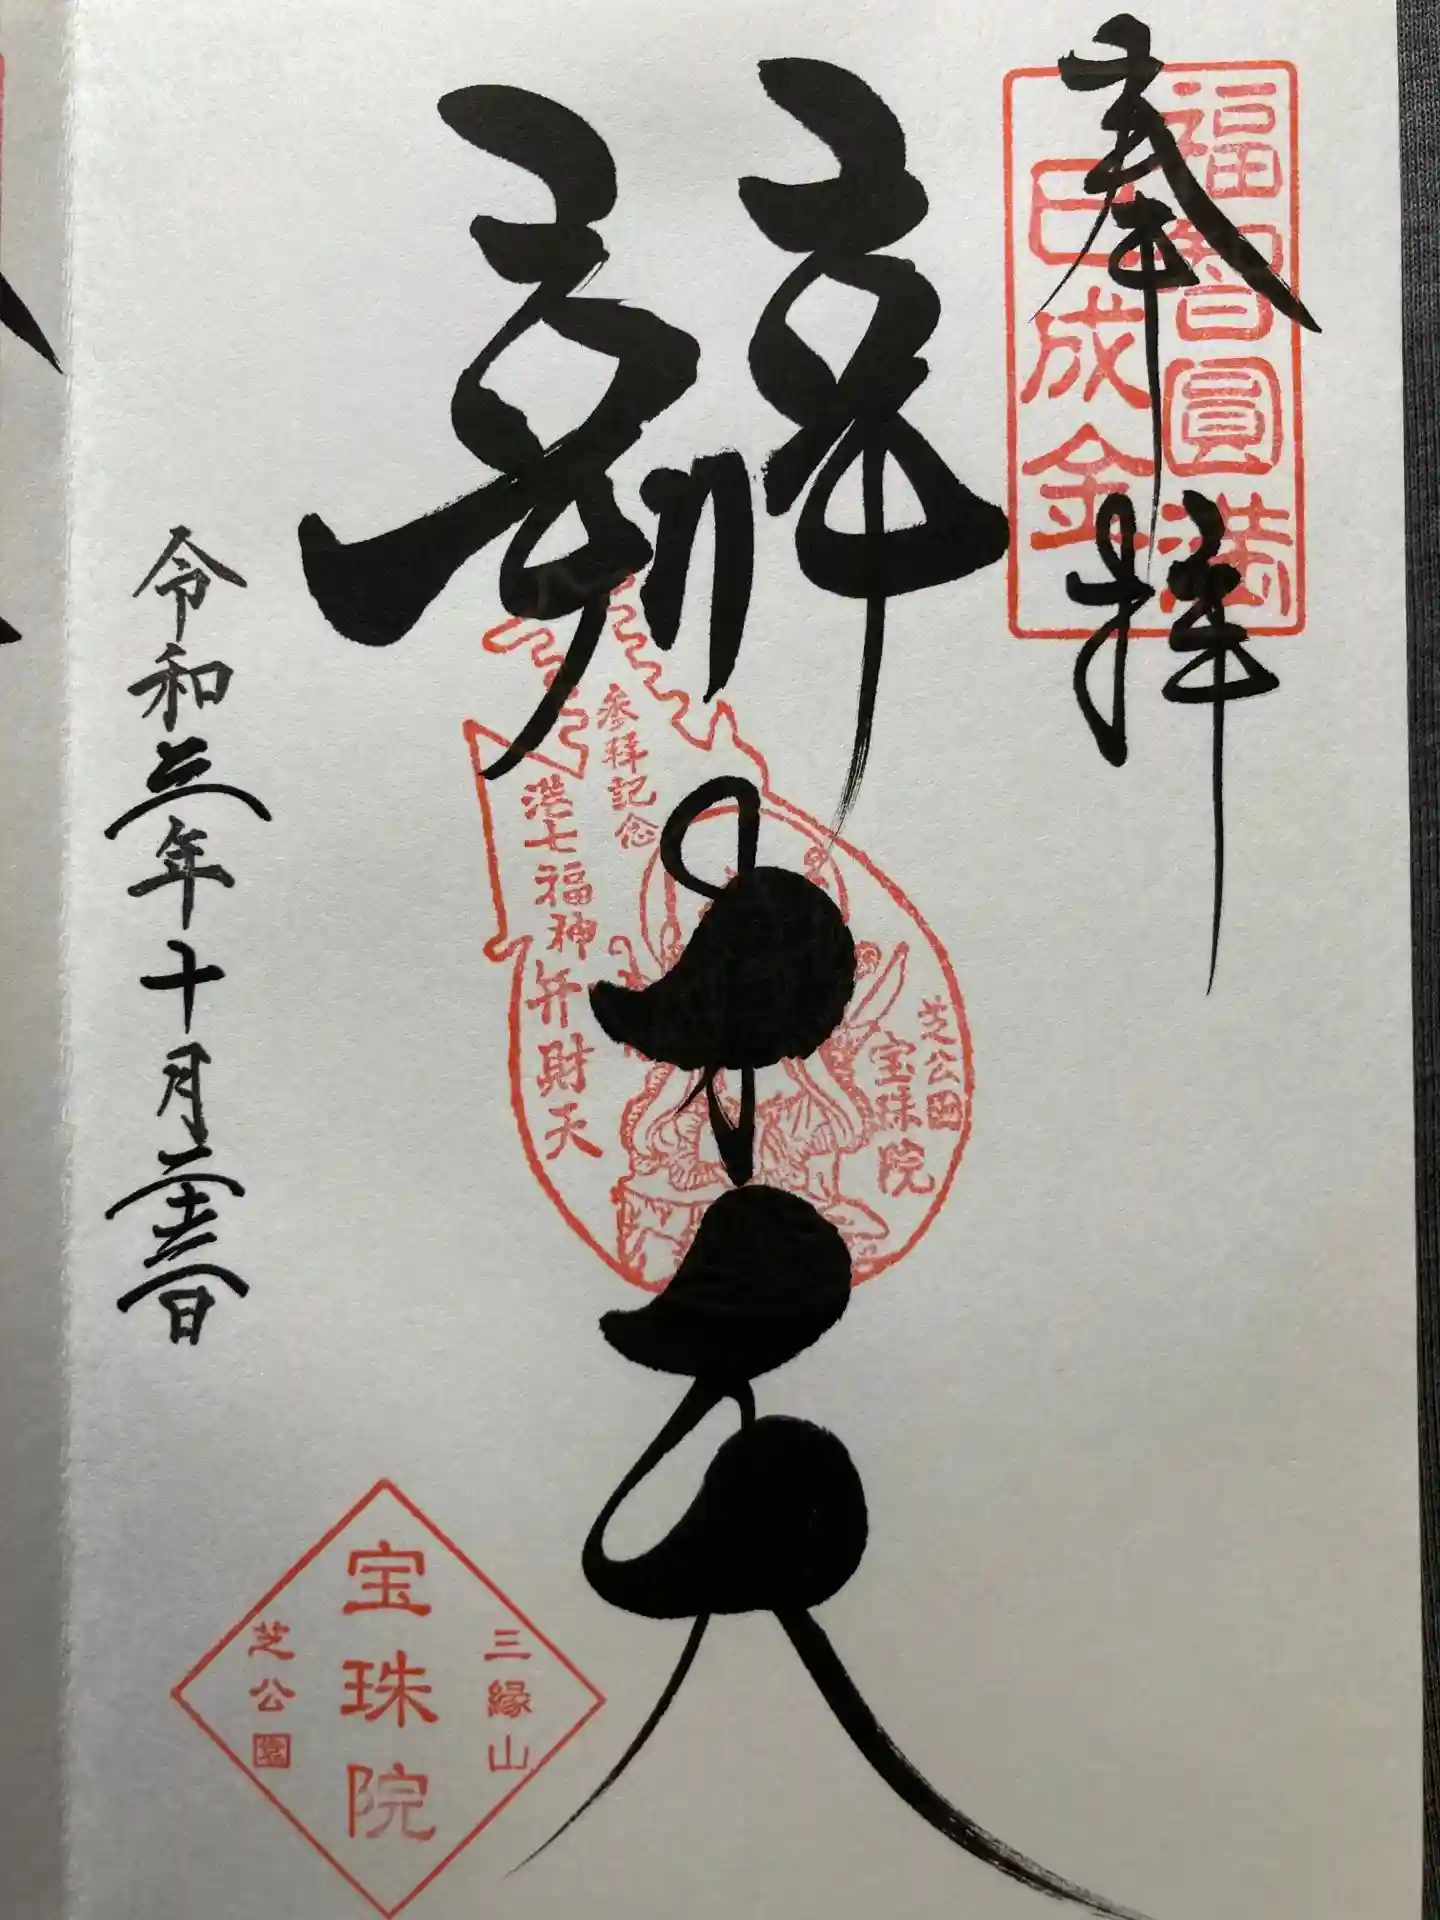 奉拝
福智圓満
巳成金
辨才天
芝公園
宝珠院
参拝記念
港七福神弁財天
令和三年十月二十三日
三縁山
宝珠院
芝公園